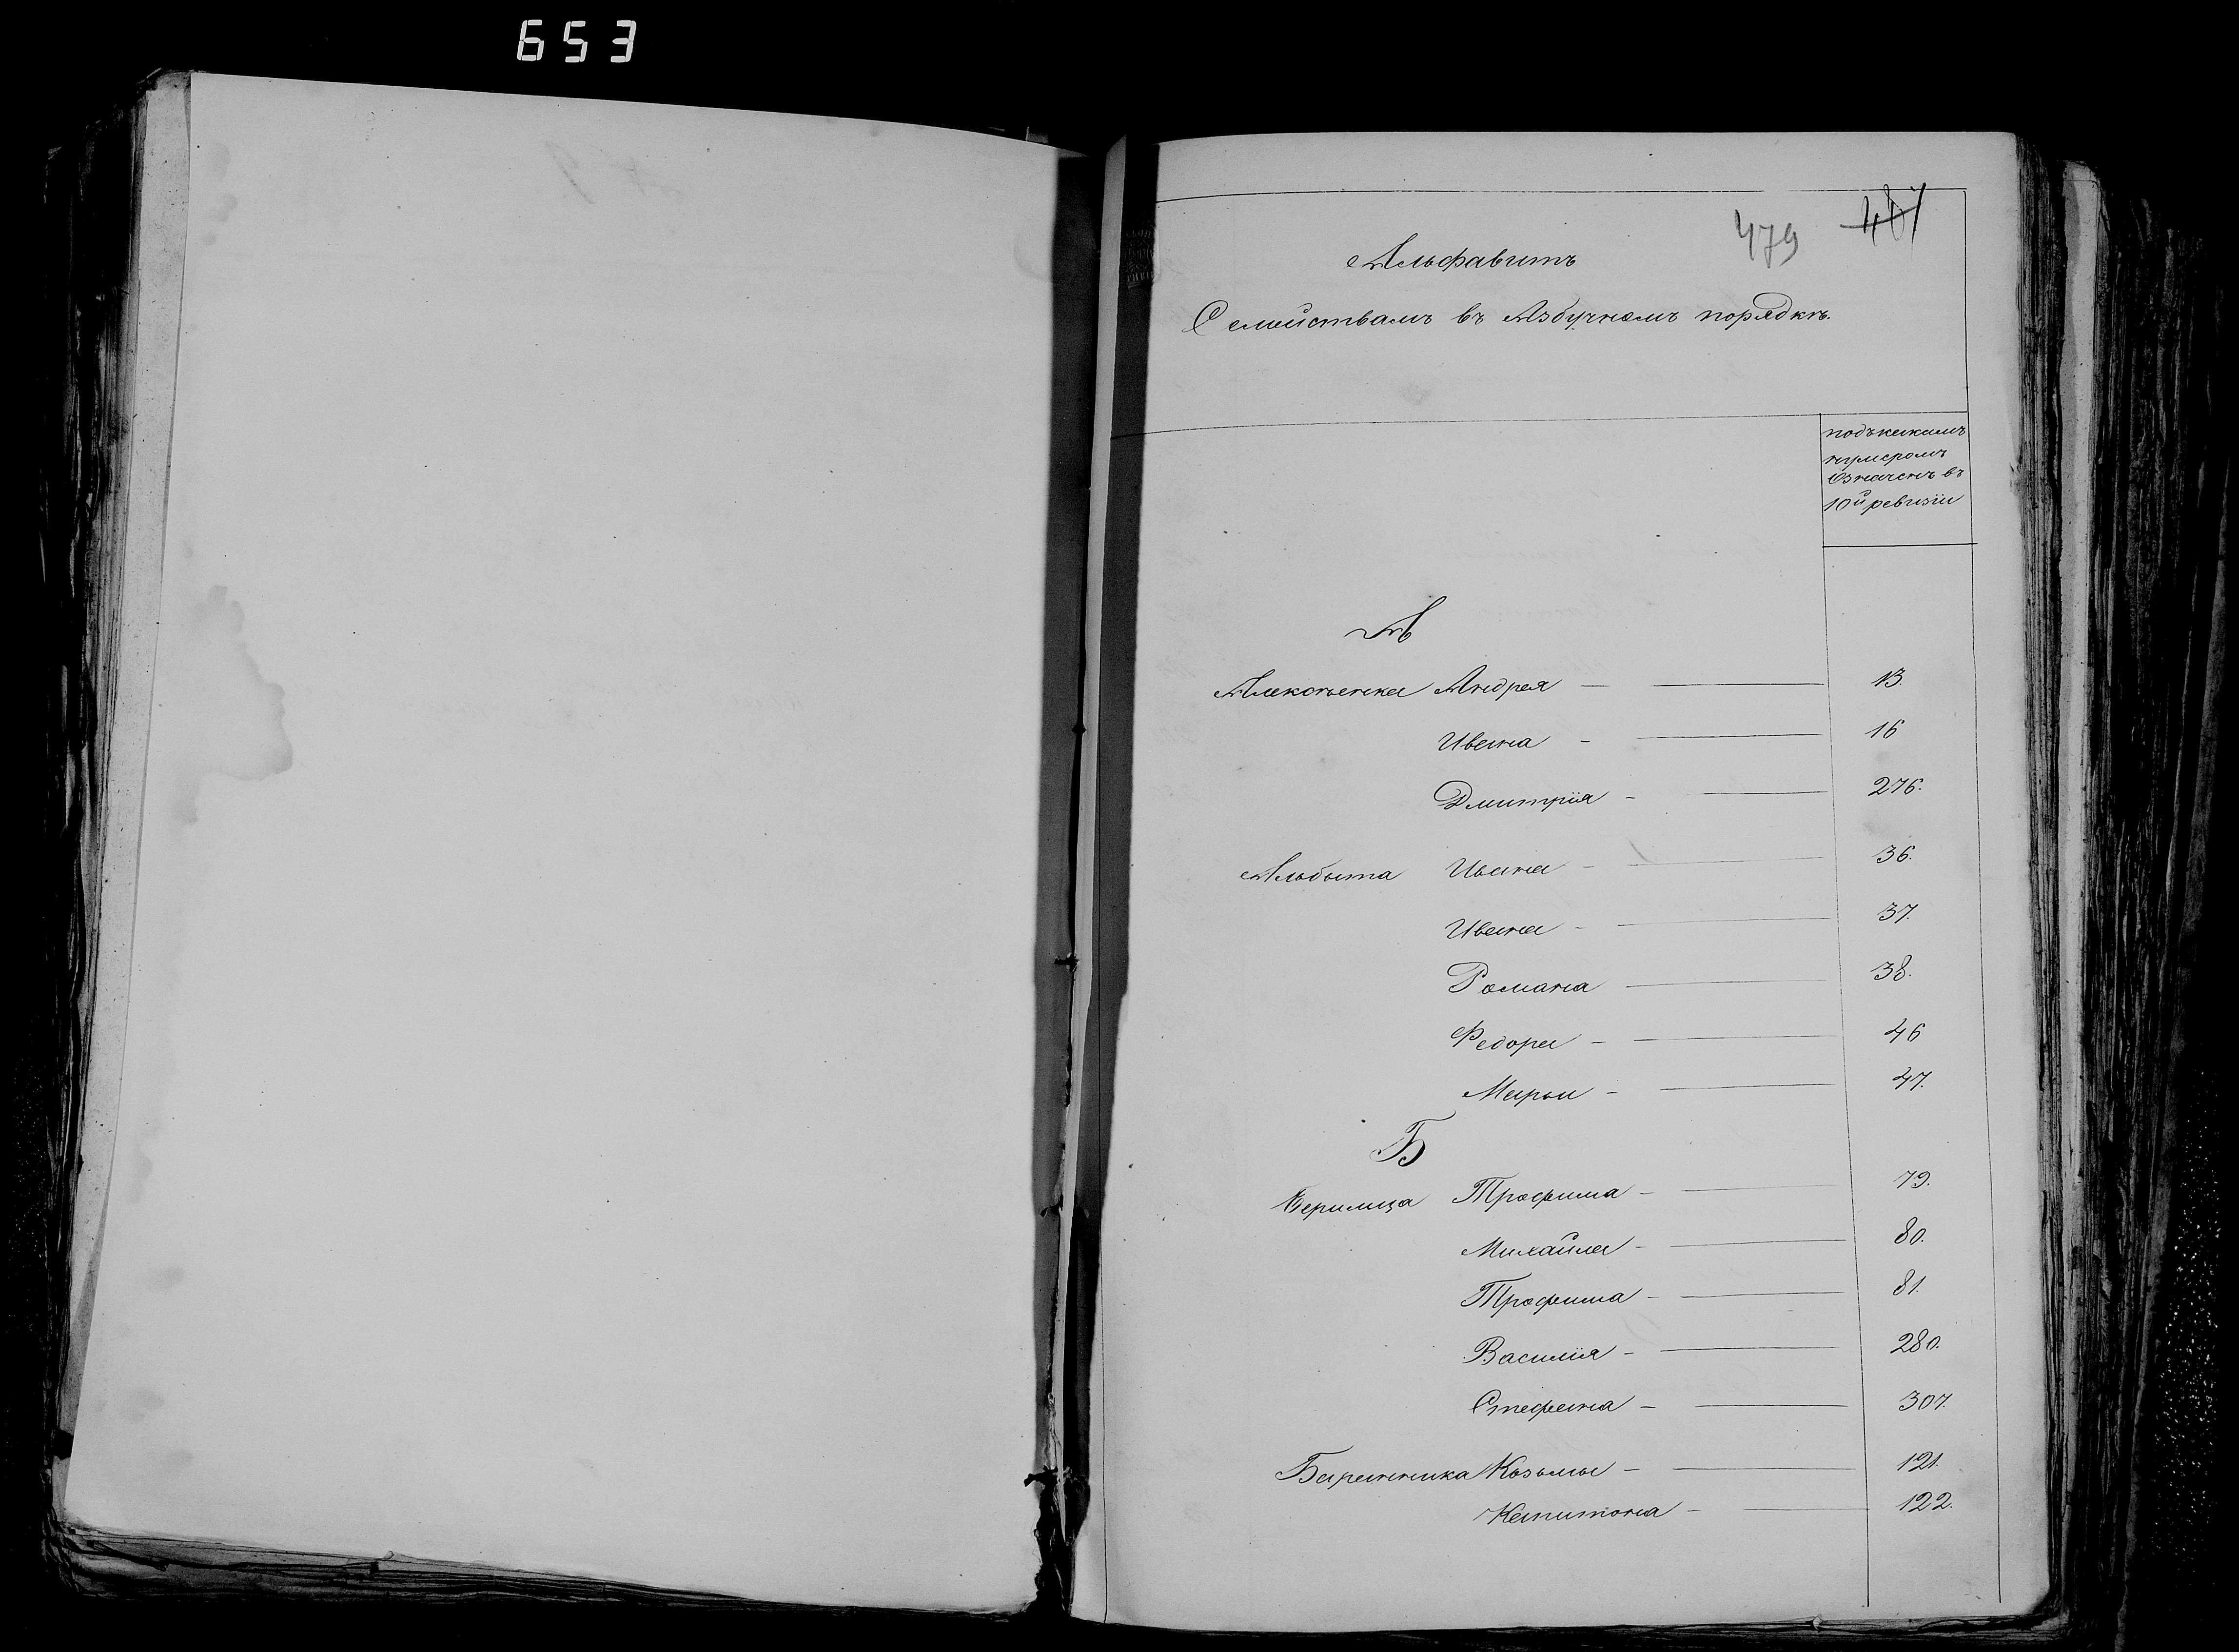 653
479 481
Альфавитъ
Семействамъ въ Азбучномъ порядкѣ.
подъ какимъ
нумеромъ
означенъ въ
10й ревизіи
А
Андрея — 13.
Ивана — 16
Дмитрія — 276.
Альбота Ивана — 36.
Ивана — 37.
Романа — 38.
Федора — 46
Марьи — 47.
Б
Берилица Трофима — 79.
Михайла — 80.
Трофима — 81.
Василія — 280.
Стефана — 307.
Баранника Козьмы — 121.
Капитона — 122.